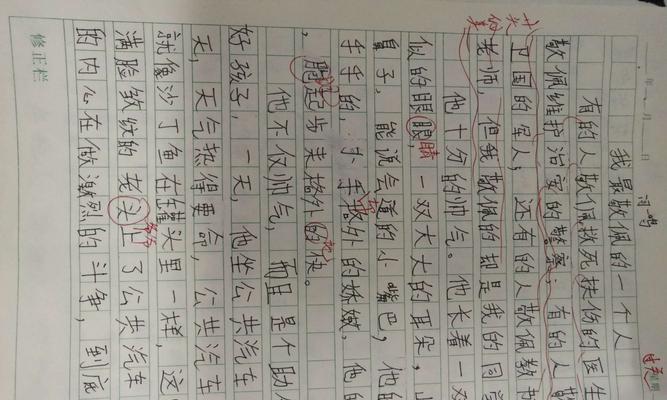 年 月 日
我最敬佩的一个人
有的人敬佩救死扶伤的医生
敬佩维护治安的警察；有的人敬
卫国的军人；还有的人敬佩教书
老师，但我敬佩的却是我的同学
他十分的帅气。他长着一双
似的眼睛，一双大大的耳朵，
鼻子，能说会道的小嘴巴，他的
的，小手格外的娇嫩，他的
，跑起步来格外的快。
他不仅帅气，而且是个助人
好孩子，一天，他坐公共汽车
天，天气热得要命，公共汽车
就像沙丁鱼在罐头里一样，这
满脸皱纹的老头上了公共汽车
的内心在做激烈的斗争，到底
修正栏